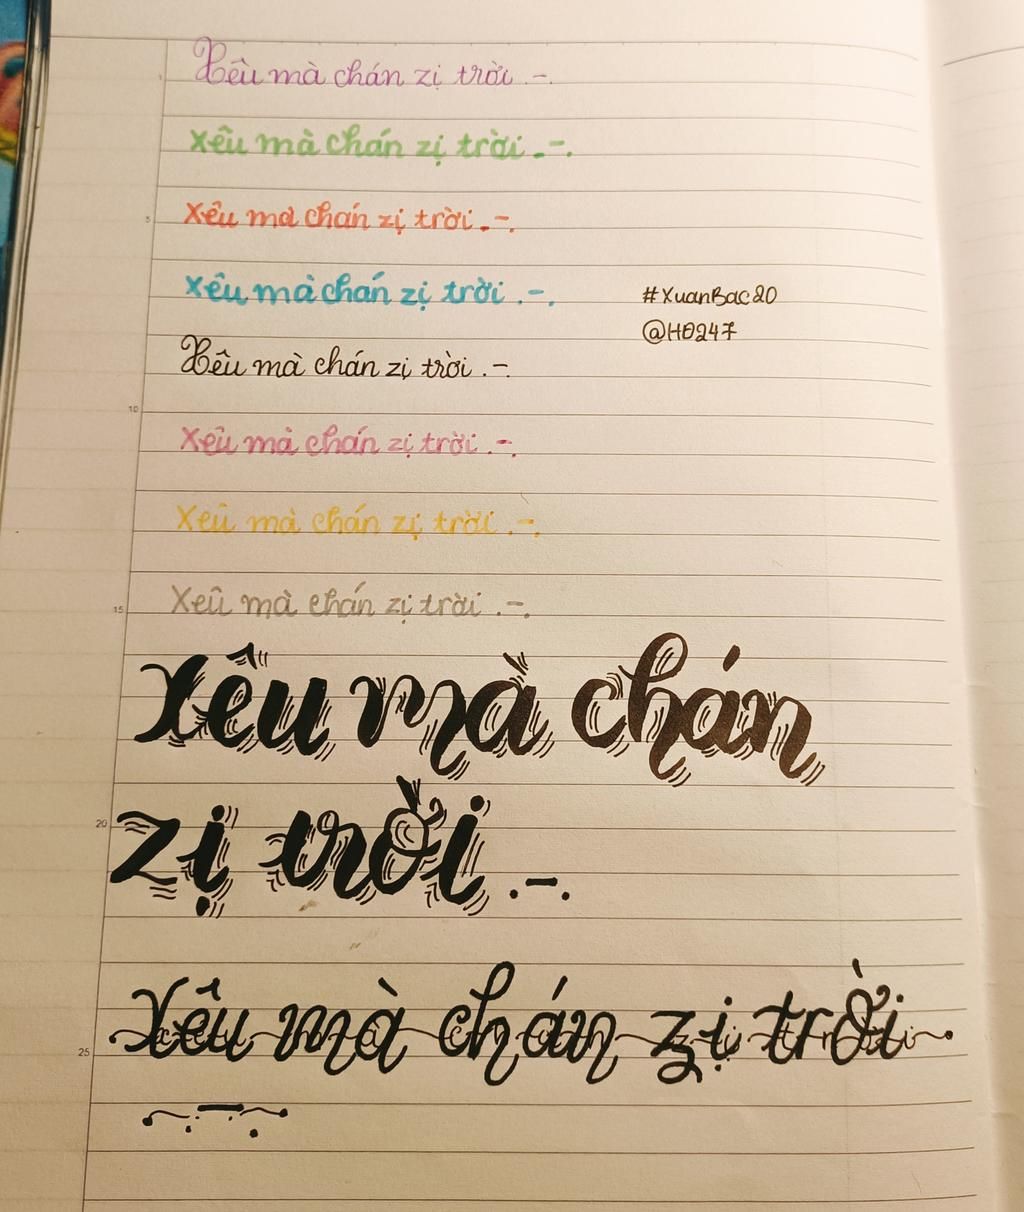 Xêu mà chán zị trời .-.
Xêu mà chán zị trời .-.
5
Xêu mà chán zị trời .-.
Xêu mà chán zị trời .-.
#XuanBac20
@HĐ247
Xêu mà chán zị trời .-.
10
Xêu mà chán zị trời .-.
Xêu mà chán zị trời .-.
15
Xêu mà chán zị trời .-.
Xêu mà chán
20
zị trời .-.
Xêu mà chán zị trời
25
.-.